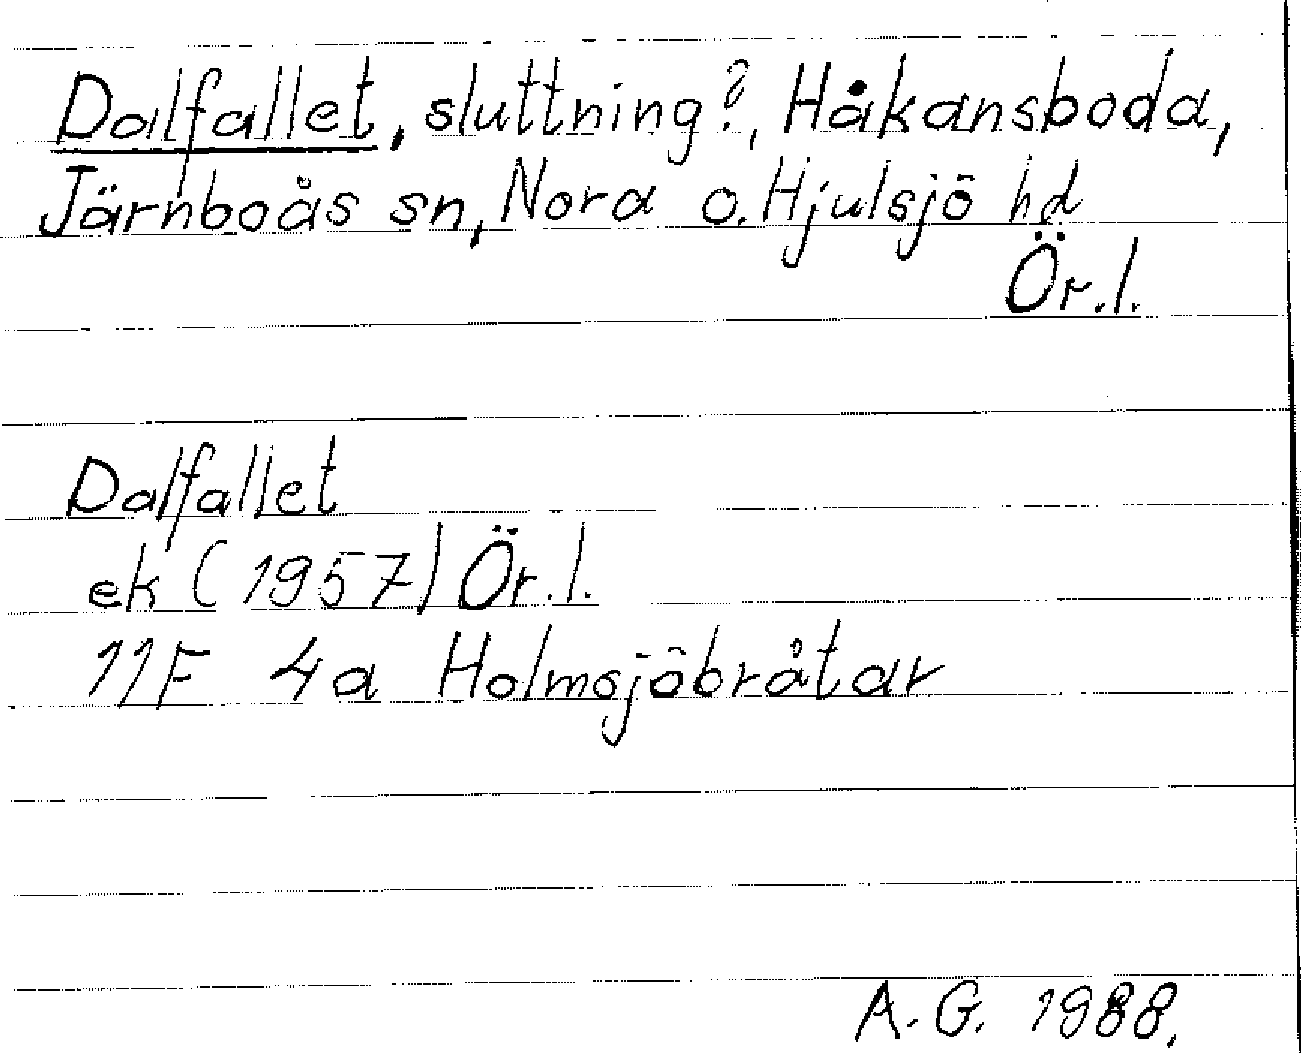 Dalfallet, sluttning?, Håkansboda,
Järnboås sn, Nora o. Hjulsjö hd
Ör.l.
Dalfallet
ek (1957) Ör.l.
11F 4a Holmsjöbråtar
A.G. 1988.